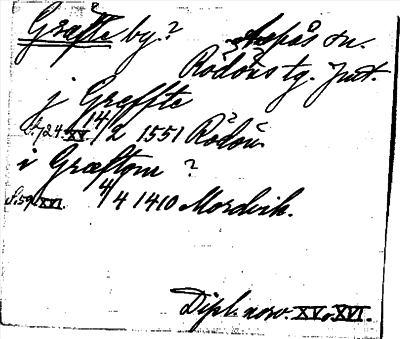 Græfte by?
Aspås sn.
Rödöns tg. Jmt.
j Greffte
S. 724. XV. 14/2 1551 Rödön.
i Græftom ?
S. 59 XVI. 4/4 1410 Mordvik.
Dipl. norv. XV o. XVI.